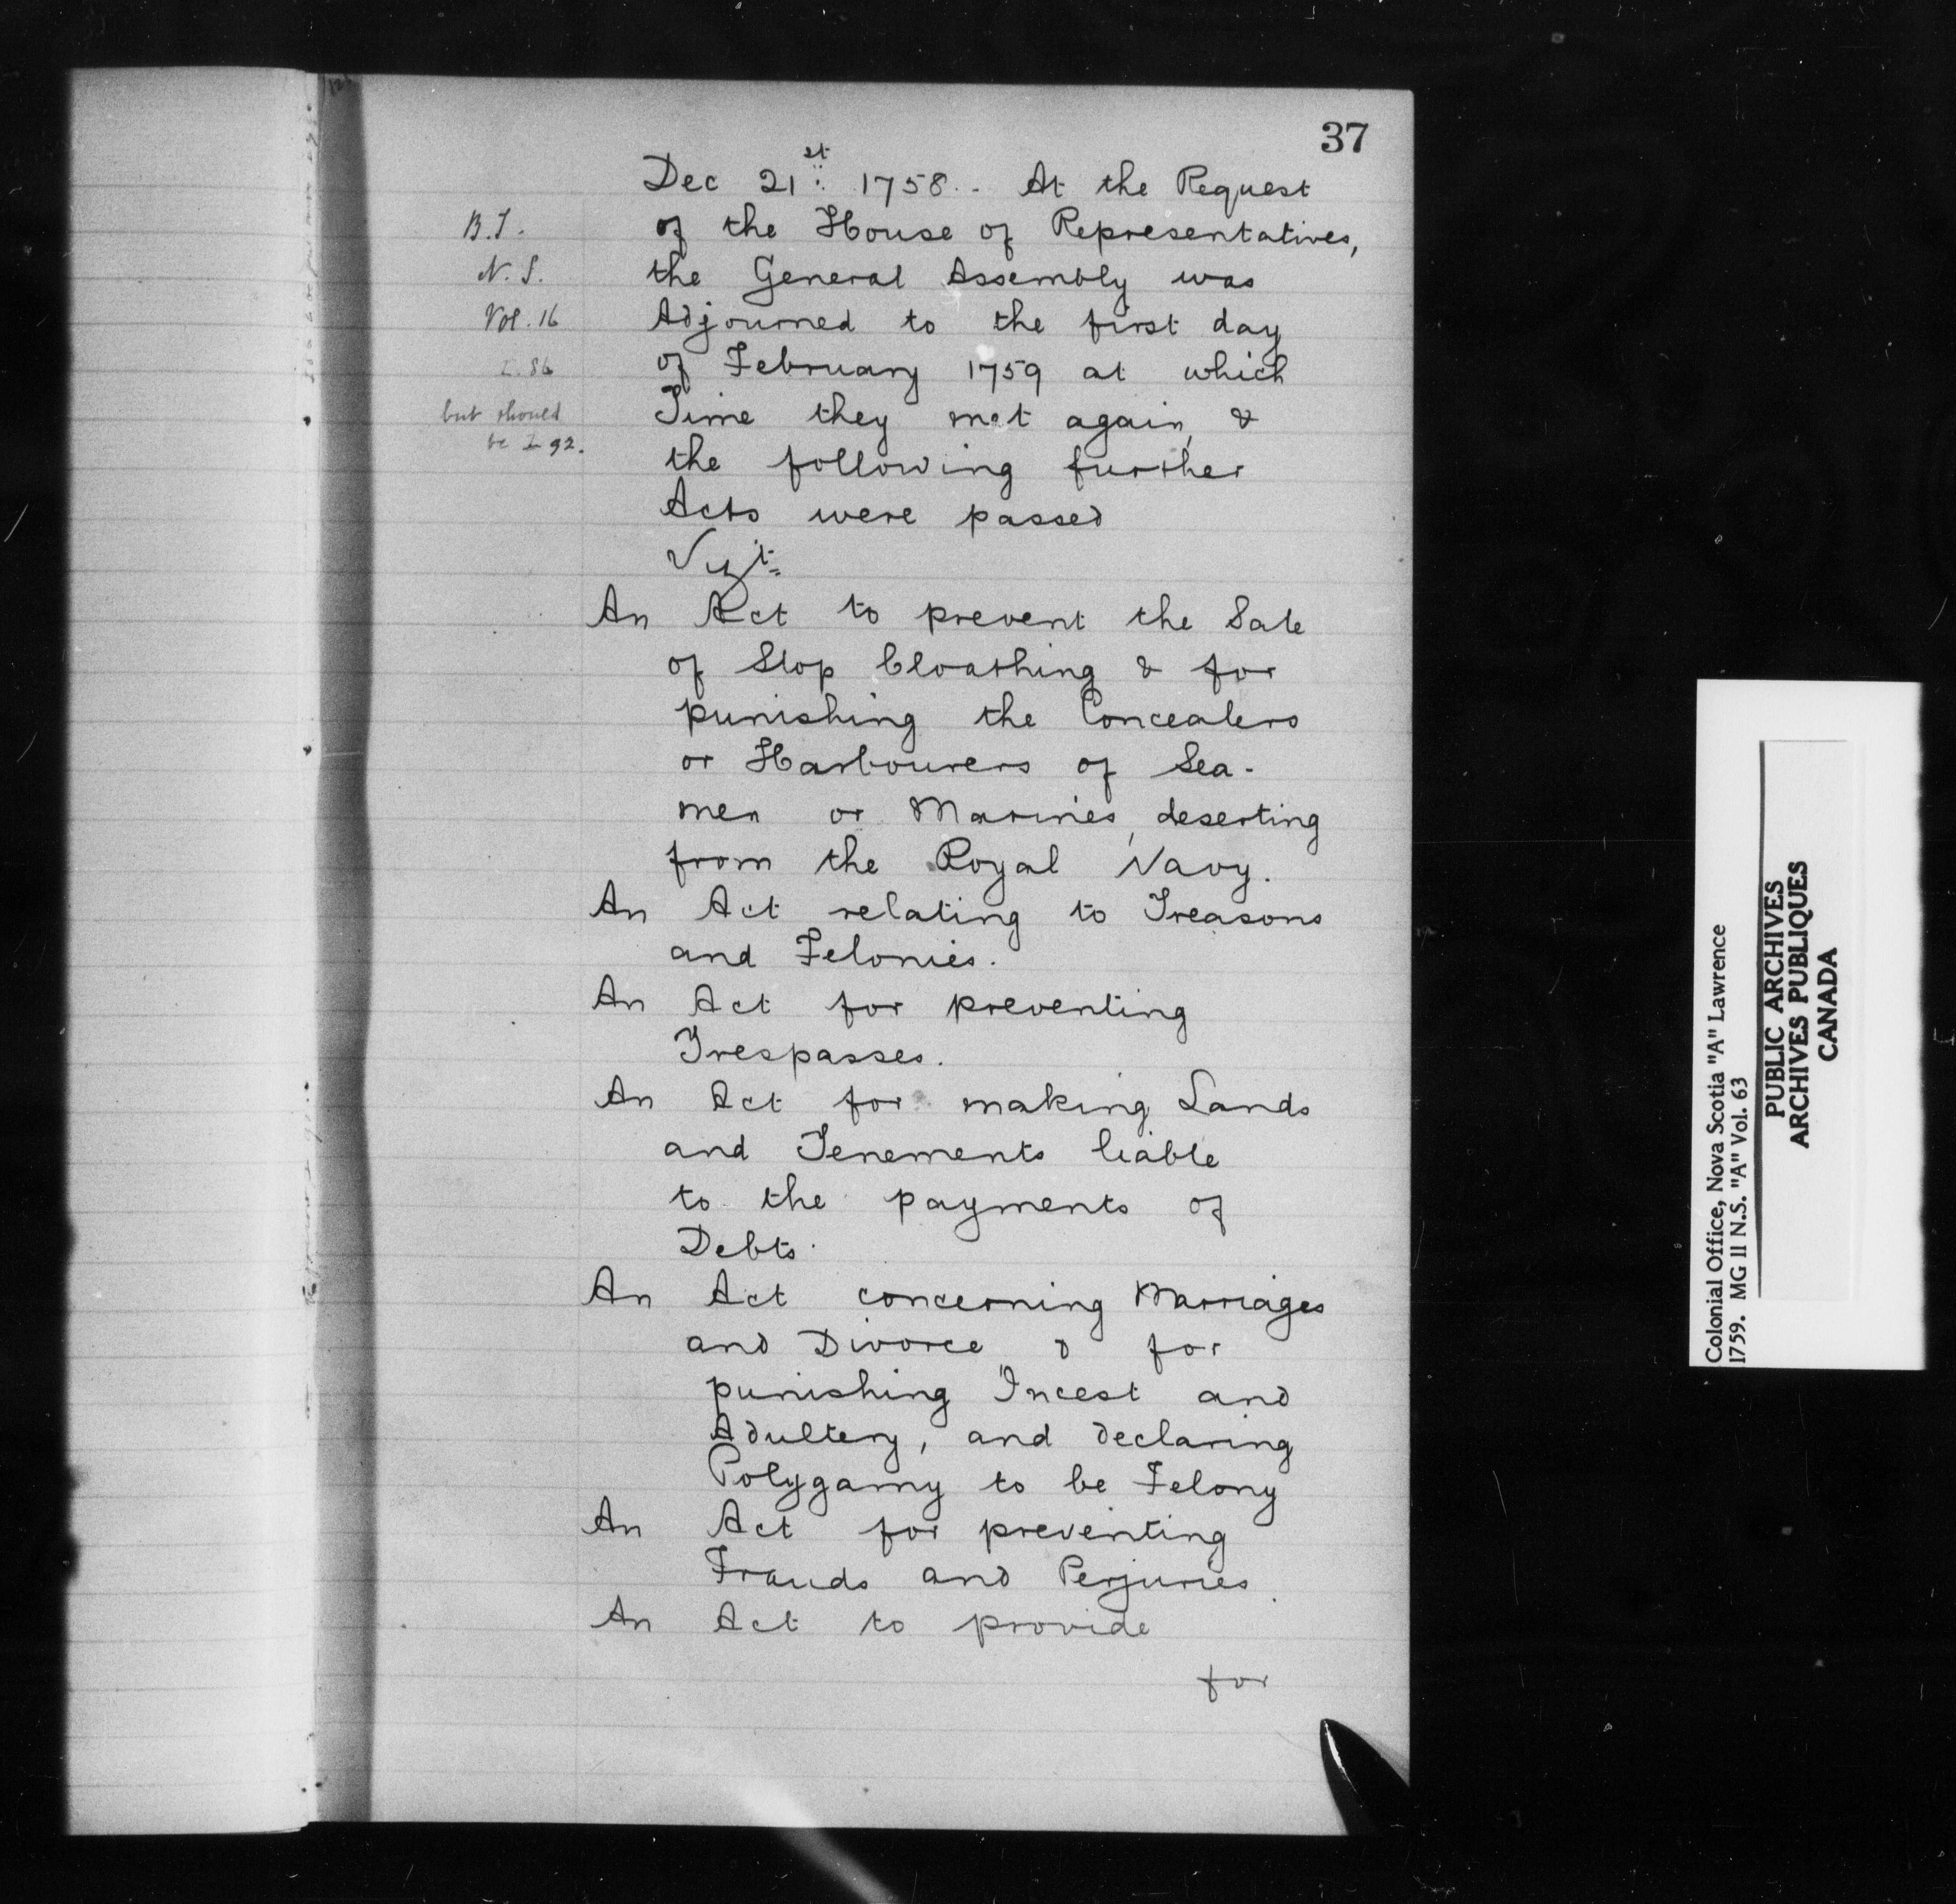 37
Dec 21st 1758. - At the Request
of the House of Representatives,
the General Assembly was
Adjourned to the first day
of February 1759 at which
Time they met again, &
the following further
Acts were passed
Vizt
An Act to prevent the Sale
of Slop Cloathing & for
punishing the Concealers
or Harbourers of Sea-
men or Marines, deserting
from the Royal Navy.
An Act relating to Treasons
and Felonies.
An Act for preventing
Trespasses.
An Act for making Lands
and Tenements liable
to the payments of
Debts.
An Act concerning Marriages
and Divorce & for
punishing Incest and
Adultery, and declaring
Polygamy to be Felony
An Act for preventing
Frauds and Perjuries.
An Act to provide
for
B.T.
N.S.
Vol. 16
I. 86
but should
be I 92.
Colonial Office, Nova Scotia "A" Lawrence
1759. MG 11 N.S. "A" Vol. 63
PUBLIC ARCHIVES
ARCHIVES PUBLIQUES
CANADA